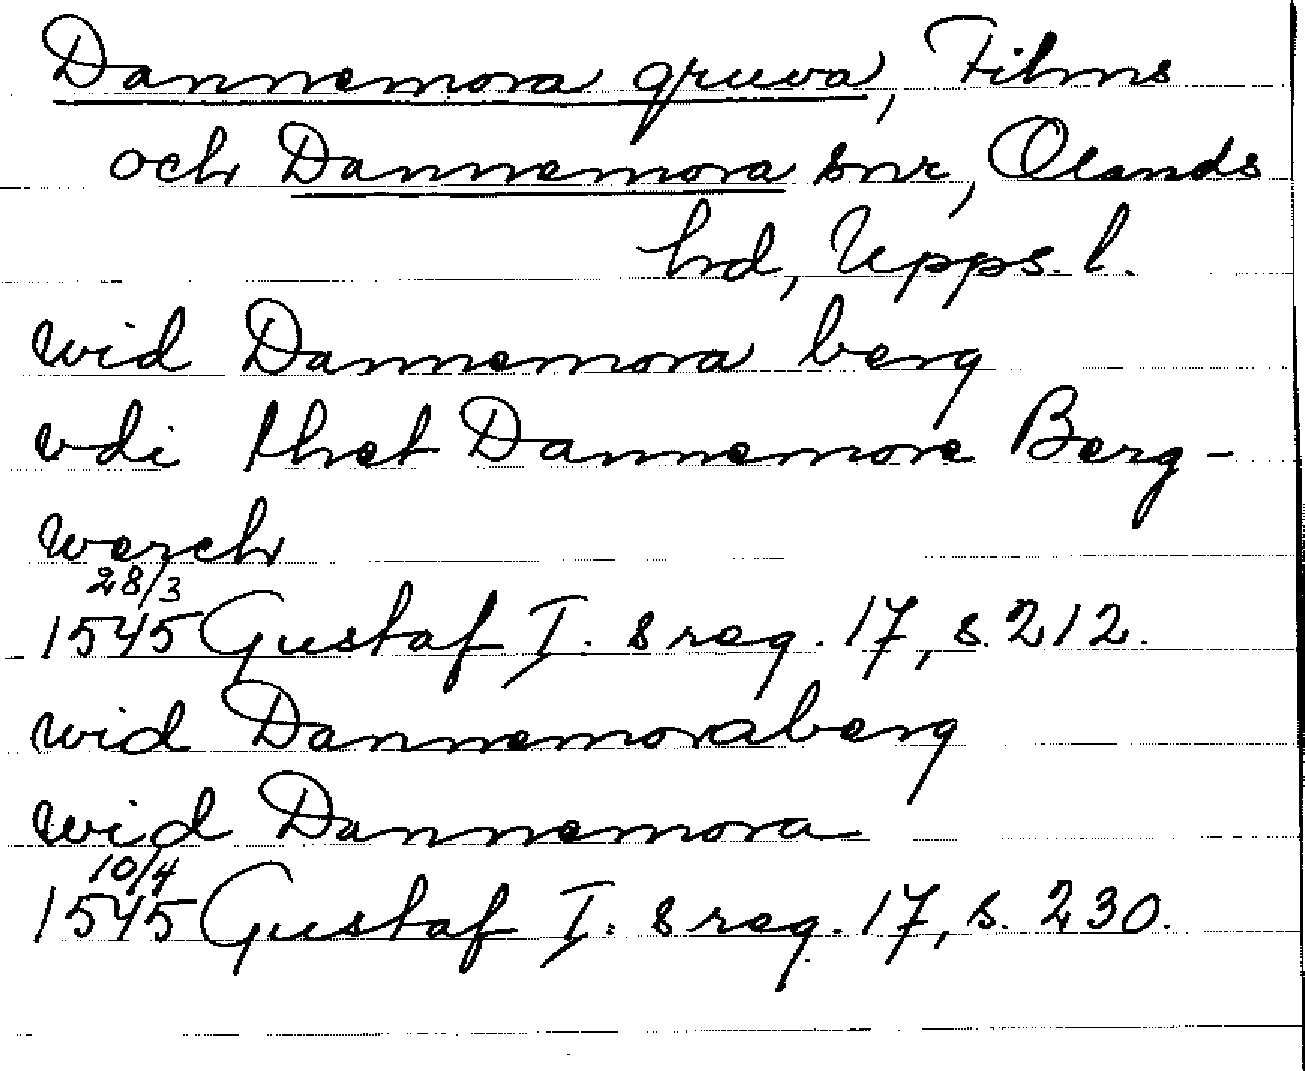 Dannemora gruva, Films
och Dannemora snr, Olands
hd, Upps. l.
wid Dannemora berg
vdi thet Dannemore Berg-
werch
28/3
1545 Gustaf I:s reg. 17, s. 212.
wid Dannemoraberg
wid Dannemora
10/4
1545 Gustaf I:s reg. 17, s. 230.